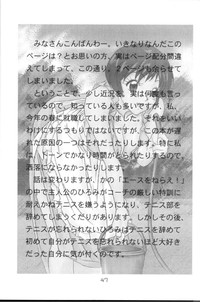 みなさんこんばんわー。いきなりなんだこの
ページは?とお思いの方、実はページ配分間違
えてしまって、この通り、2ページも余らせて
しまいました。
ということで、少し近況を、実は何度も言っ
ているので、知っている人も多いですが、私、
今年の春に就職してしまいました。これをいい
わけにするつもりではないですが、この本が遅
れた原因の一つはそれだったりします。特に私
は、ドーンでかなり時間がとられたりするので、
洒落にならなかったりします。
話は変わりますが、かの「エースをねらえ!」
の中で主人公のひろみがコーチの厳しい特訓に
耐えかねテニスを嫌うようになり、テニス部を
辞めてしまうくだりがあります。しかしその後、
テニスが忘れられないひろみはテニスを辞めて
初めて自分がテニスを忘れられないほど大好き
だった自分に気が付くのです。
47